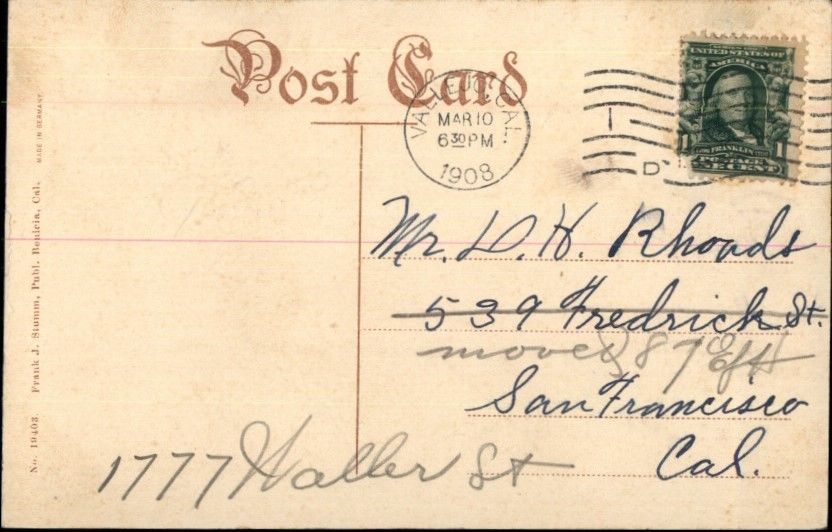 Post Card
VALLEJO, CAL.
MAR 10
6 30 PM
1908
D
SERIES 1902
UNITED STATES OF
AMERICA
1 FRANKLIN 1
POSTAGE
ONE CENT
Mr. D. H. Rhoads
539 Fredrick St.
moved 87
San Francisco
Cal.
1777 Waller St
No. 19403 Frank J. Stumm, Publ. Benicia, Cal. MADE IN GERMANY